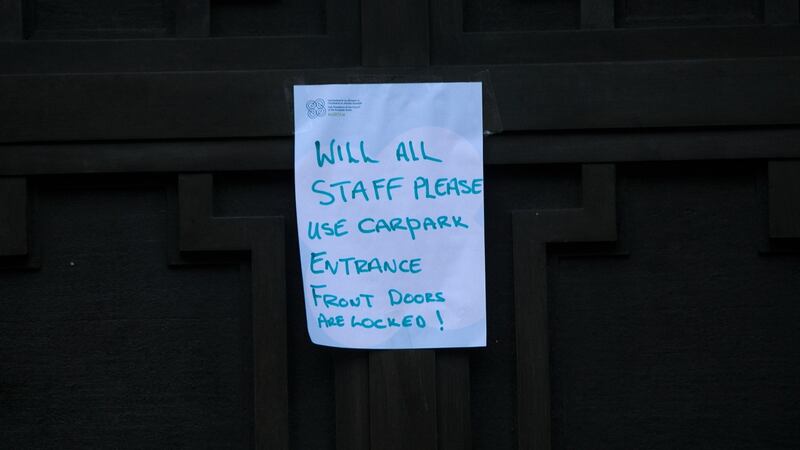 WILL ALL
STAFF PLEASE
USE CARPARK
ENTRANCE
FRONT DOORS
ARE LOCKED !